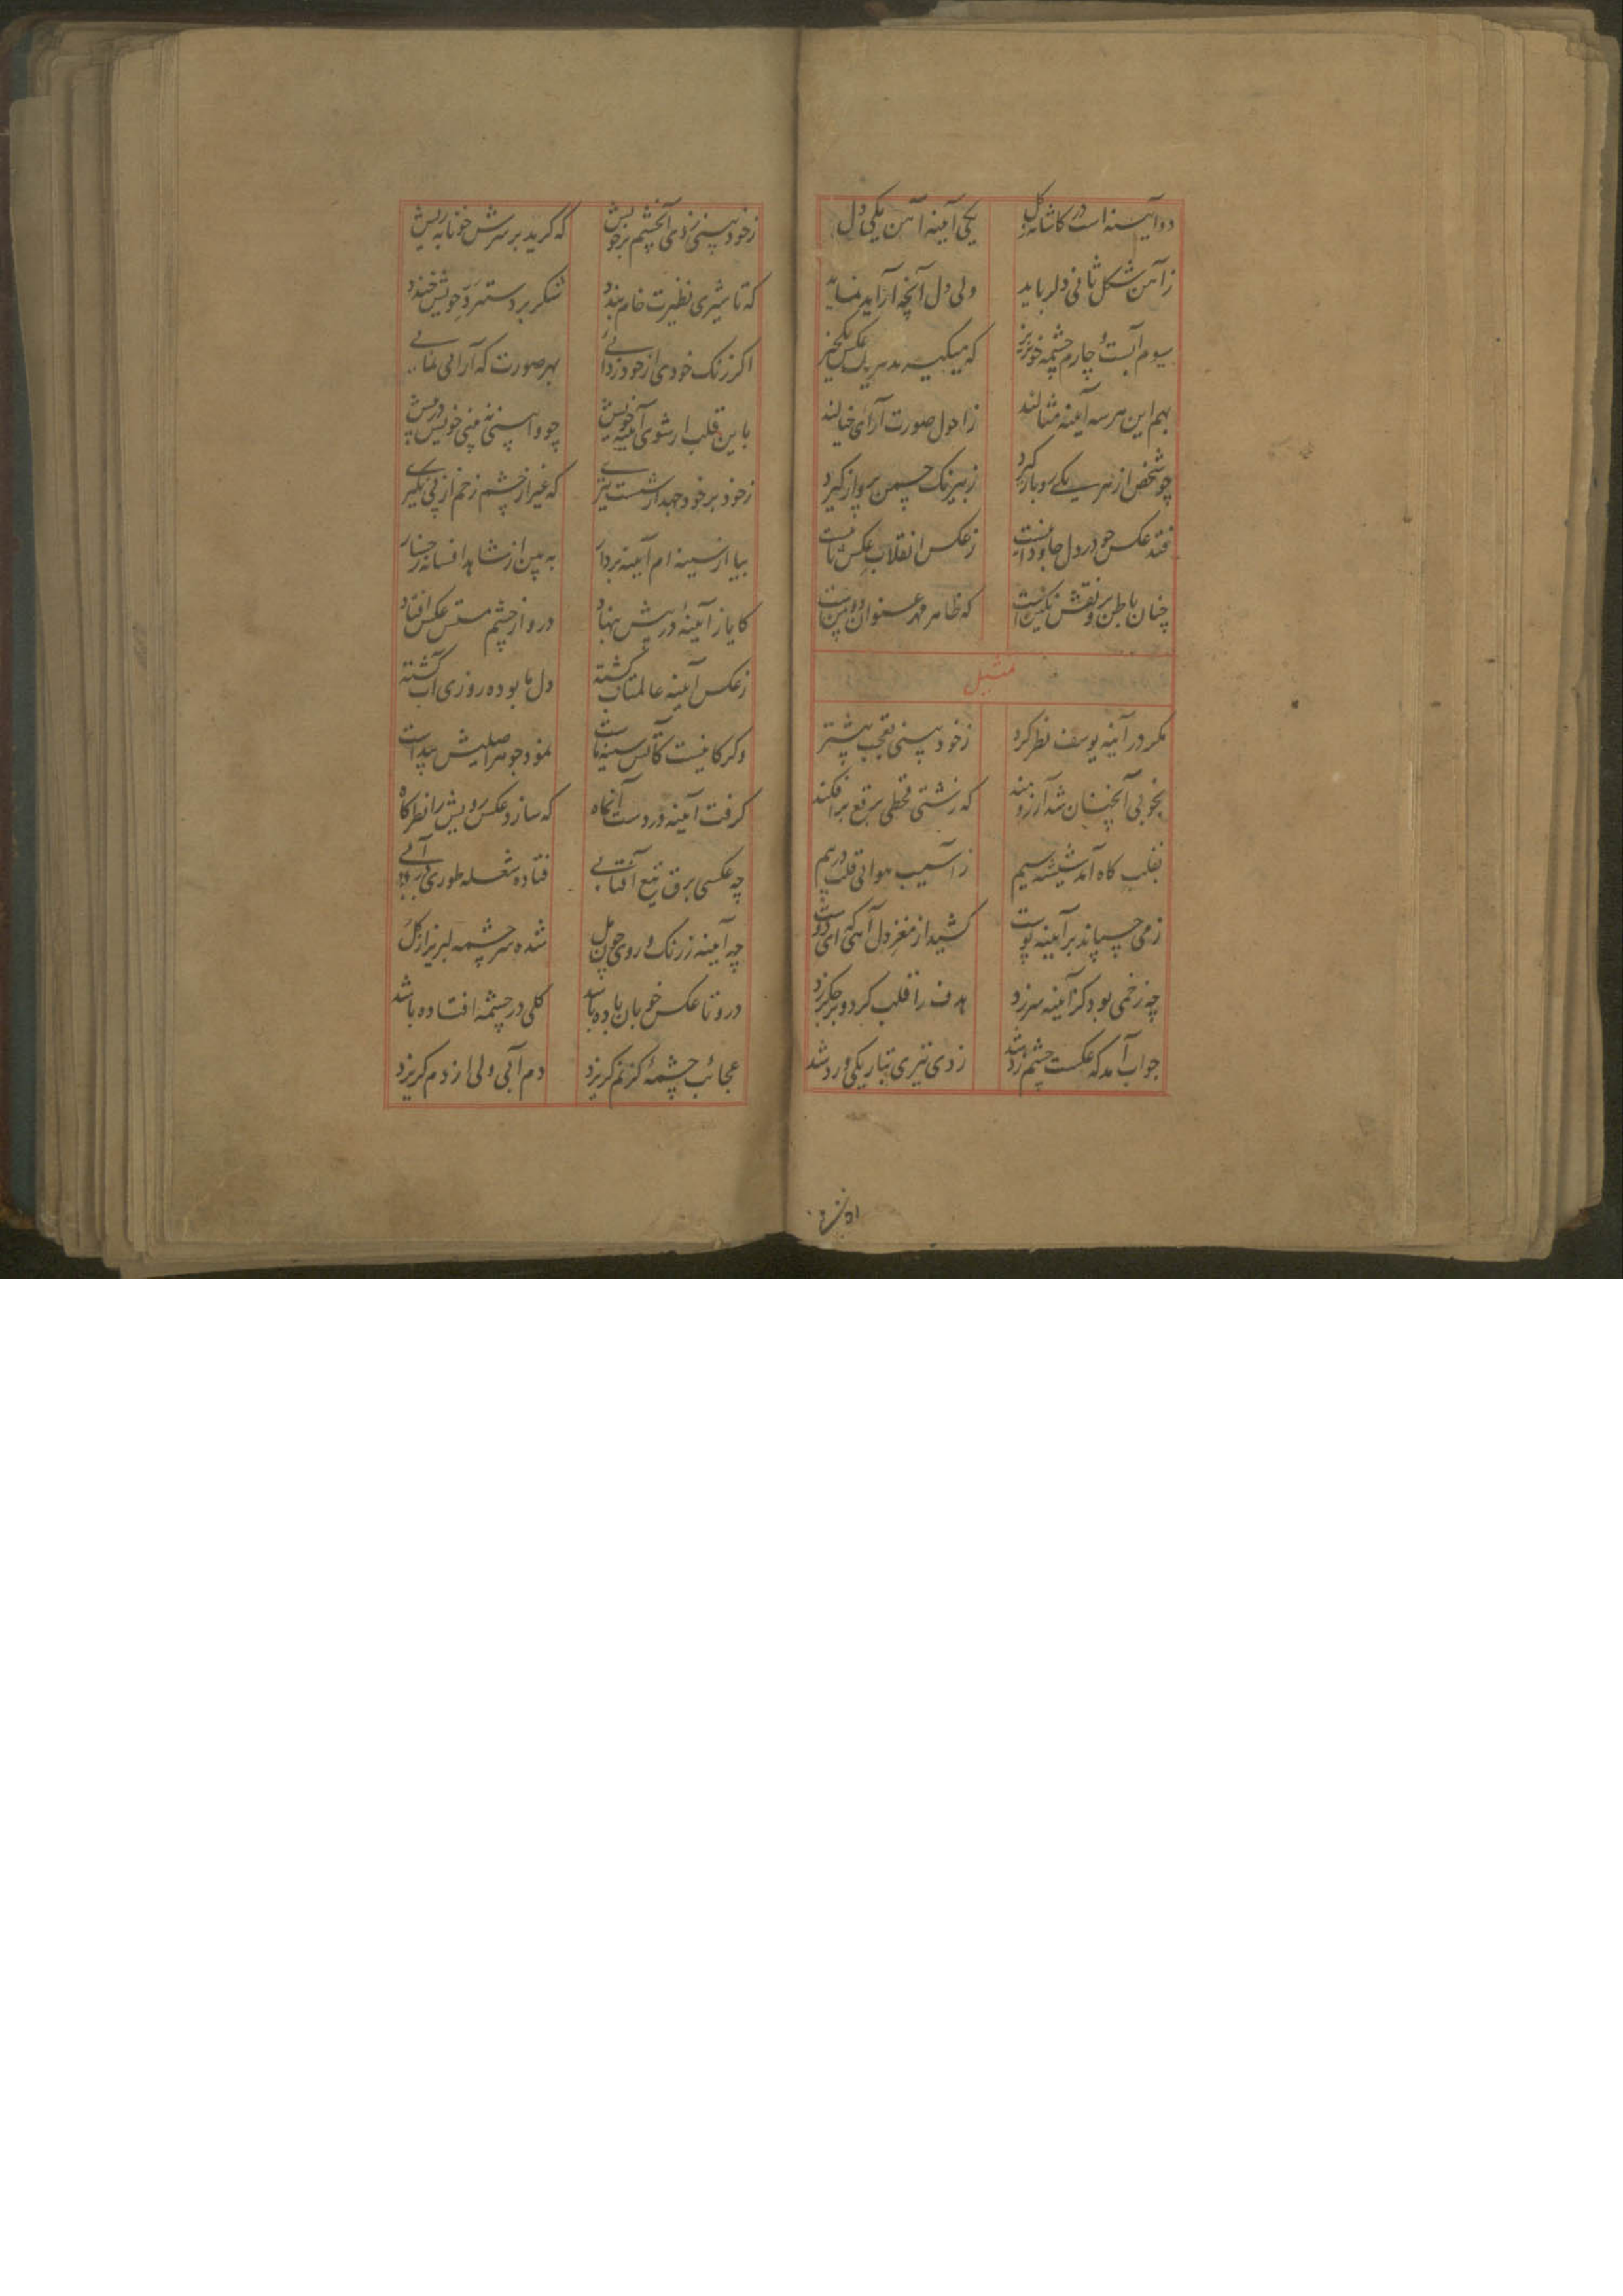 دو آیینه است در کاشانهٔ گل یکی آیینه آهن یکی دل
ز آهن شکل ثانی دلرباید ولی دل آنچه آراید نماید
سیوم آبست و چارم چشمه خونریز که میگیرد هر یک عکس
بهم این هرسه آیینه مثالند ز احول صورت آرای خیالند
چو شخص از هر یکی رو باز گیرد ز نیرنگ چمن پرواز گیرد
فتد عکس چو در دل جاودانست ز عکس انقلاب عکس
چنان باطن برو نقش نگین است که ظاهر مهر عنوان
تمثیل
مگر در آینه یوسف نظر کرد ز خود بینی تعجب بیشتر
بخوبی آنچنان شد آرزومند که زشتی قحطی برقع برافکند
بقلب کاه آمد شیشه سیم ز آسیب هوائی قلب درهم
ز می چسپاند بر آیینه پوست کشید از مغز دل آهی که ای دوست
چه زخمی بود کز آیینه سر زد هدف را قلب کرد و بر جگر زد
جواب آمد که عکست چشم زد شد زدی تیری بتاریکی و رد شد
ز خود بینی زدی آنچشم بر خویش که گرید بر سرش خونابه ریش
که تا شیری نظیرت خام بندد شکر بر دستبرد خویش خندد
اگر زنگ خودی از خود زدائی بهر صورت که آرائی نمائی
باین قلب ار شوی آیینه خویش چو وا بینی نه بینی خویش در پیش
ز خود بر خود جهد از شست تیری که غیر از چشم زخم از پی نگیری
بیا از سینه ام آیینه بردار به بین از شاهد افسانه رخسار
کایاز آیینهٔ در پیش بنهاد درو از چشم مستش عکس افتاد
ز عکس آیینه عالمتاب گشته دل ما بوده روزی آب گشته
وگر کافیست کآتش سینه ماست نمود جوهر اصلیش پیداست
گرفت آیینه در دست آنگاه که سازد عکس رویش را نظرگاه
چه عکسی برق تیغ آفتابی فتاده شعله طوری در آبی
چه آیینه ز رنگ و روی چون مل شده سرچشمه لبریز از گل
درو تا عکس خوبان باده باشد گلی در چشمه افتاده باشد
عجائب چشمهٔ کز نم گریزد دم آبی ولی از دم گریزد